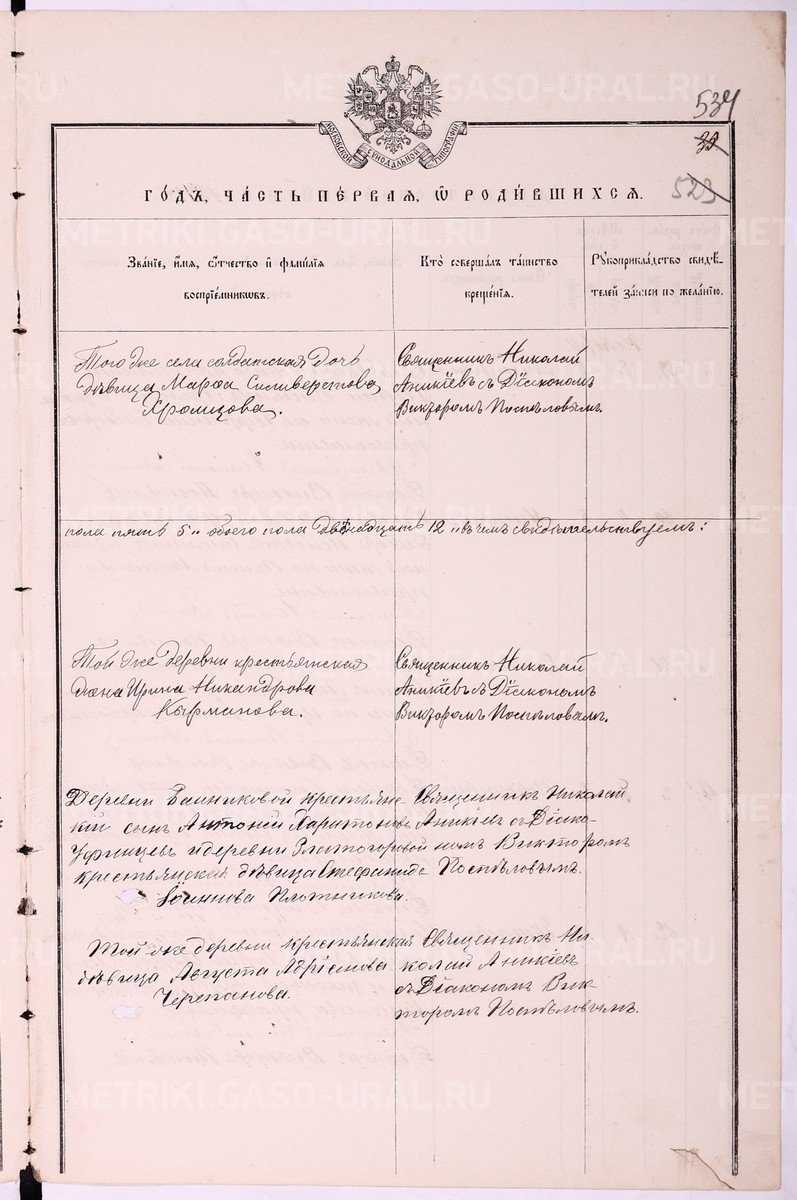 METRIKI.GASO-URAL.RU
534
МОСКОВСКОЙ СѴНОДАЛЬНОЙ ТИПОГРАФІИ
39
523
ГО́ДЪ, ЧА́СТЬ ПЕ́РВАЯ, Ѡ РОДИ́ВШИХСЯ.
Зва́ніе, и́мя, ѻ́тчество и҆ фами́лія
воспріе́мниковъ.
Кто̀ соверша́лъ та́инство
креще́нія.
Рꙋкоприкла́дство свидѣ́-
телей за́писи по жела́нію.
Того же села солдатская дочь
дѣвица Марѳа Сильверстова
Хромцова.
Священникъ Николай
Аникіевъ съ Діакономъ
Викторомъ Поспѣловымъ.
пола пять 5 „ обоего пола двѣнадцать 12 „ въ чемъ свидѣтельствуемъ:
Той же деревни крестьянская
жена Ирина Никандрова
Кырманова.
Священникъ Николай
Аникіевъ съ Діакономъ
Викторомъ Поспѣловымъ.
Деревни Банниковой крестьянс-
кій сынъ Антоній Харитоновъ
Уфинцевъ и деревни Златогоровой
крестьянская дѣвица Стефанида
Іоаннова Плотникова.
Священникъ Николай
Аникіевъ съ Діако-
номъ Викторомъ
Поспѣловымъ.
Той же деревни крестьянская
дѣвица Августа Адріанова
Черепанова.
Священникъ Ни-
колай Аникіевъ
съ Діакономъ Вик-
торомъ Поспѣловымъ.
METRIKI.GASO-URAL.RU